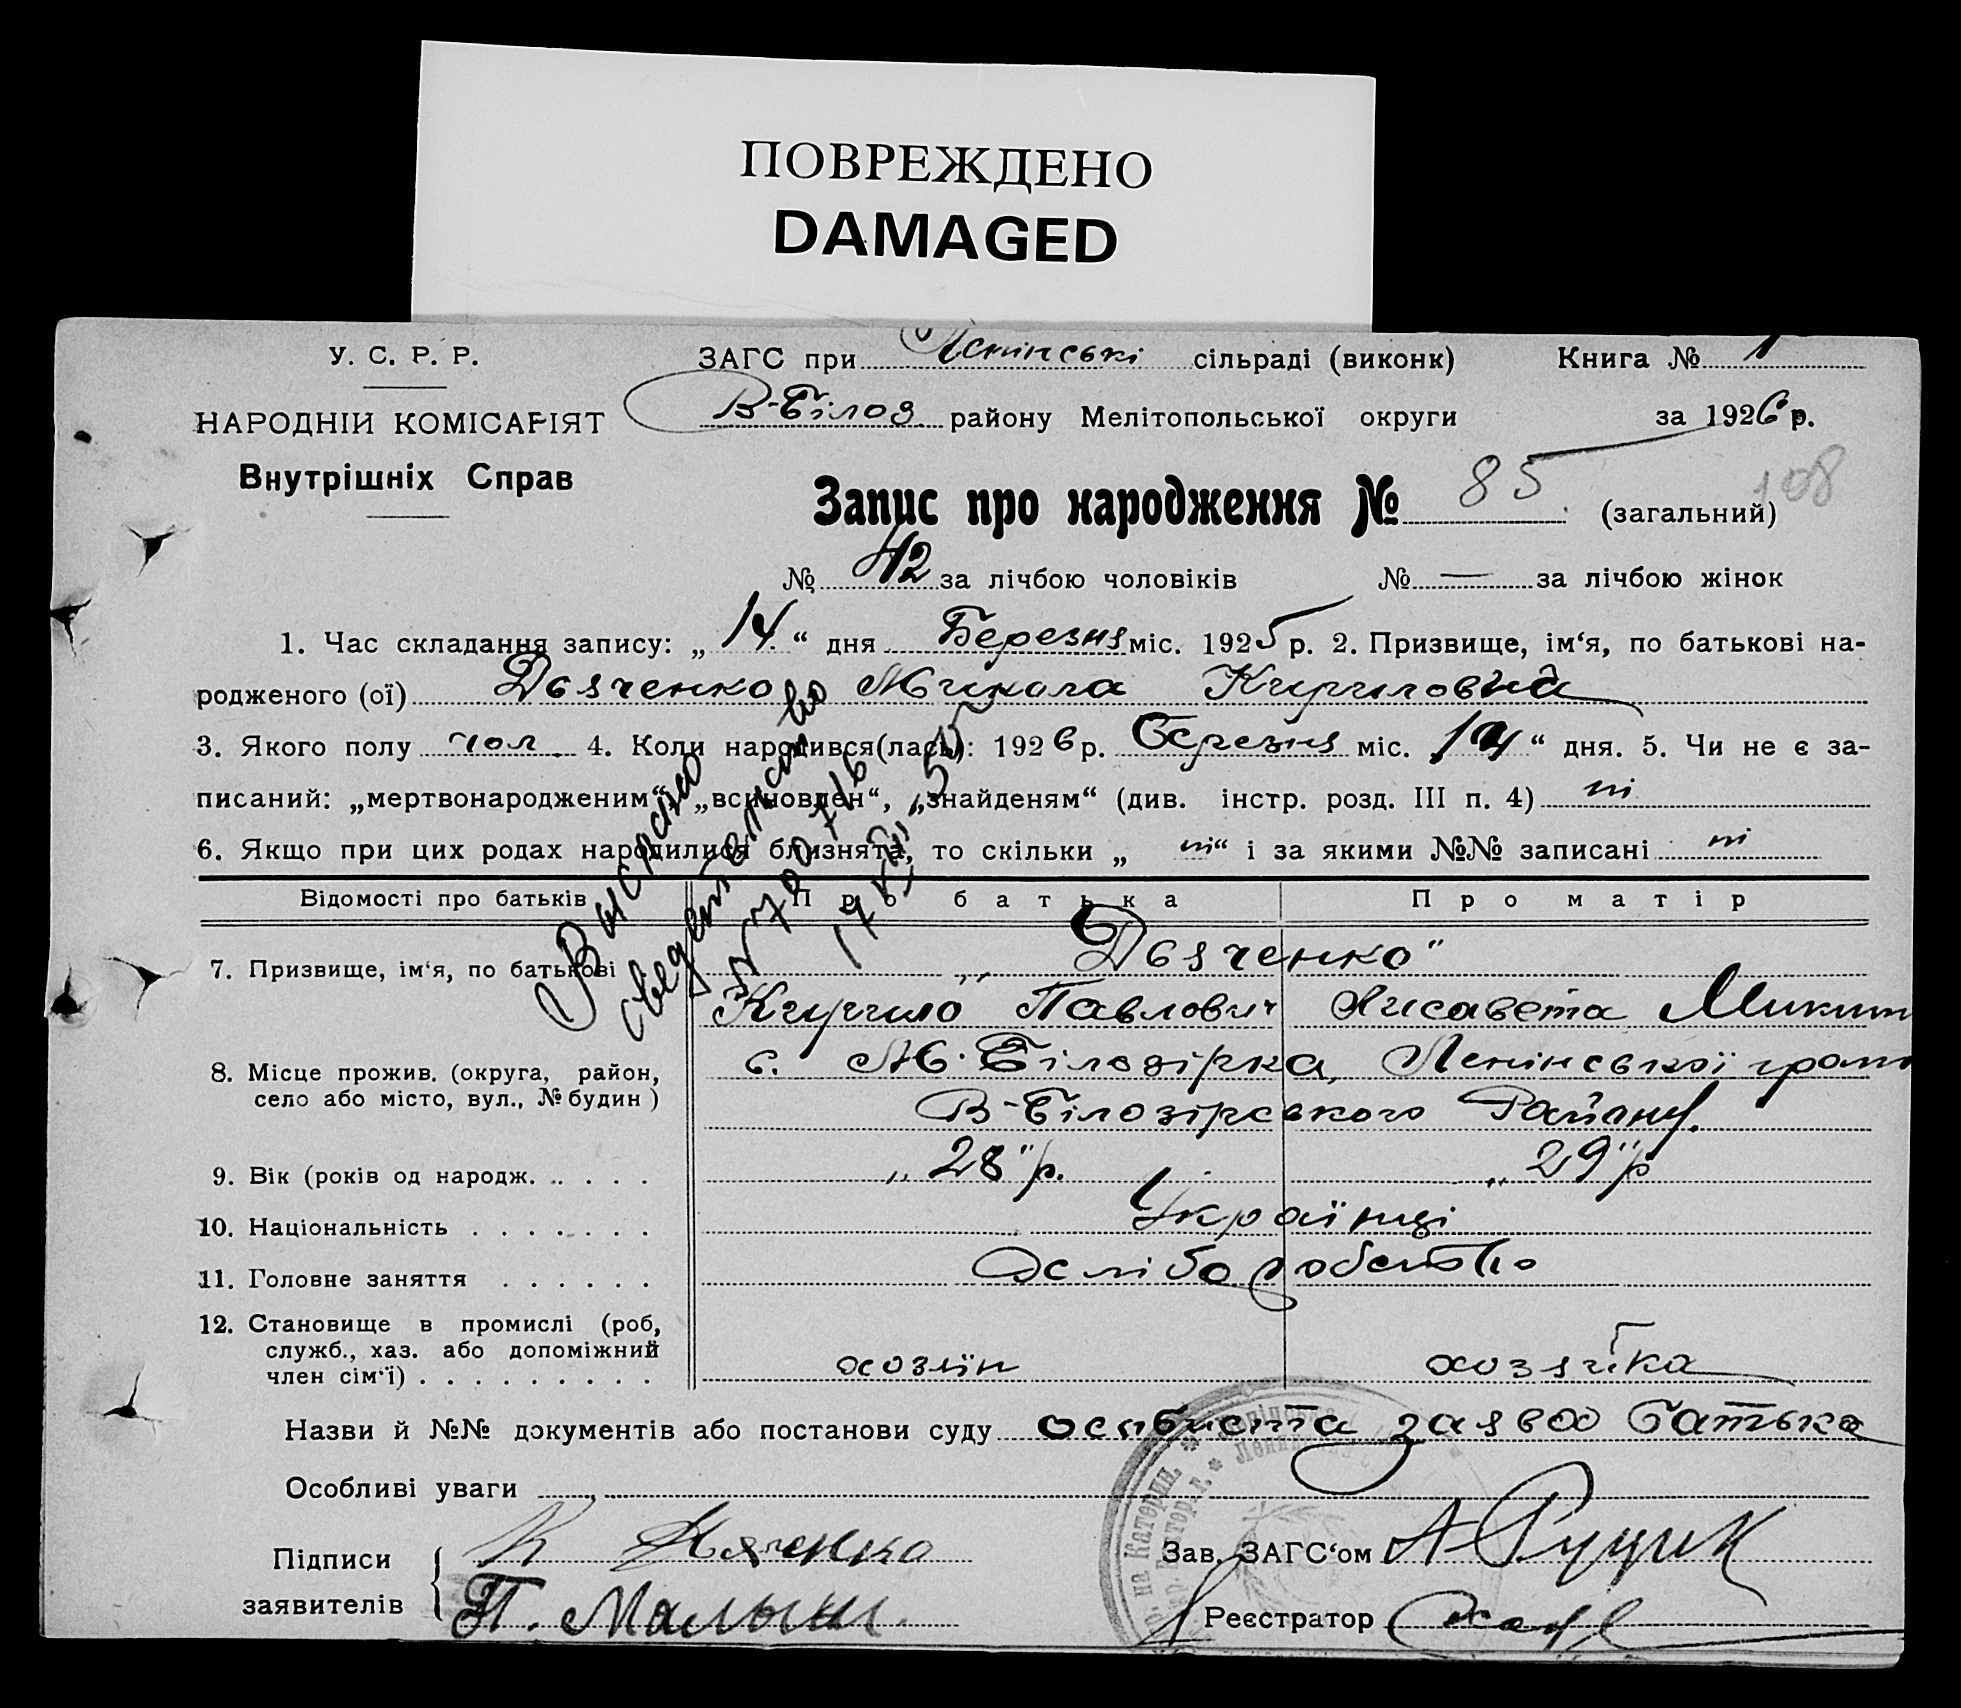 ПОВРЕЖДЕНО
DAMAGED
У. С. Р. Р.
ЗАГС при Ленінські сільраді (виконк) Книга № 1
НАРОДНІЙ КОМІСАРІЯТ
В-Білоз. району Мелітопольської округи за 1926 р.
Внутрішніх Справ
Запис про народження № 85 (загальний)
108
№ 42 за лічбою чоловіків № — за лічбою жінок
1. Час складання запису: „14“ дня Березня міс. 1925 р. 2. Призвище, ім‘я, по батькові на-
родженого (ої) Дьяченко Микола Кирилов
3. Якого полу чол. 4. Коли народився(лась): 1926 р. Березня міс. 14“ дня. 5. Чи не є за-
писаний: „мертвонародженим“, „всиновлен“, „знайденям“ (див. інстр. розд. III п. 4) ні
6. Якщо при цих родах народилися близнята, то скільки „ ні“ і за якими №№ записані ні
Выслано
свидетельство
Відомості про батьків Про батька Про матір
7. Призвище, ім‘я, по батькові „Дьяченко“
Кирило Павлович Лисавета Микит
8. Місце прожив. (округа, район, с. М. Білозірка, Ленінської гром
село або місто, вул., № будин) В-Білозірського Району.
9. Вік (років од народж. . . . . . „28“ р. „29“ р
10. Національність . . . . . . . Українці
11. Головне заняття . . . . . . Хліборобство
12. Становище в промислі (роб,
служб., хаз. або допоміжний
член сім‘ї) . . . . . . . . . хозяїн хозяйка
Назви й №№ документів або постанови суду особиста заява батька
Особливі уваги
Підписи К Дяченко Зав. ЗАГС‘ом А
заявителів П. Малыш. Реєстратор